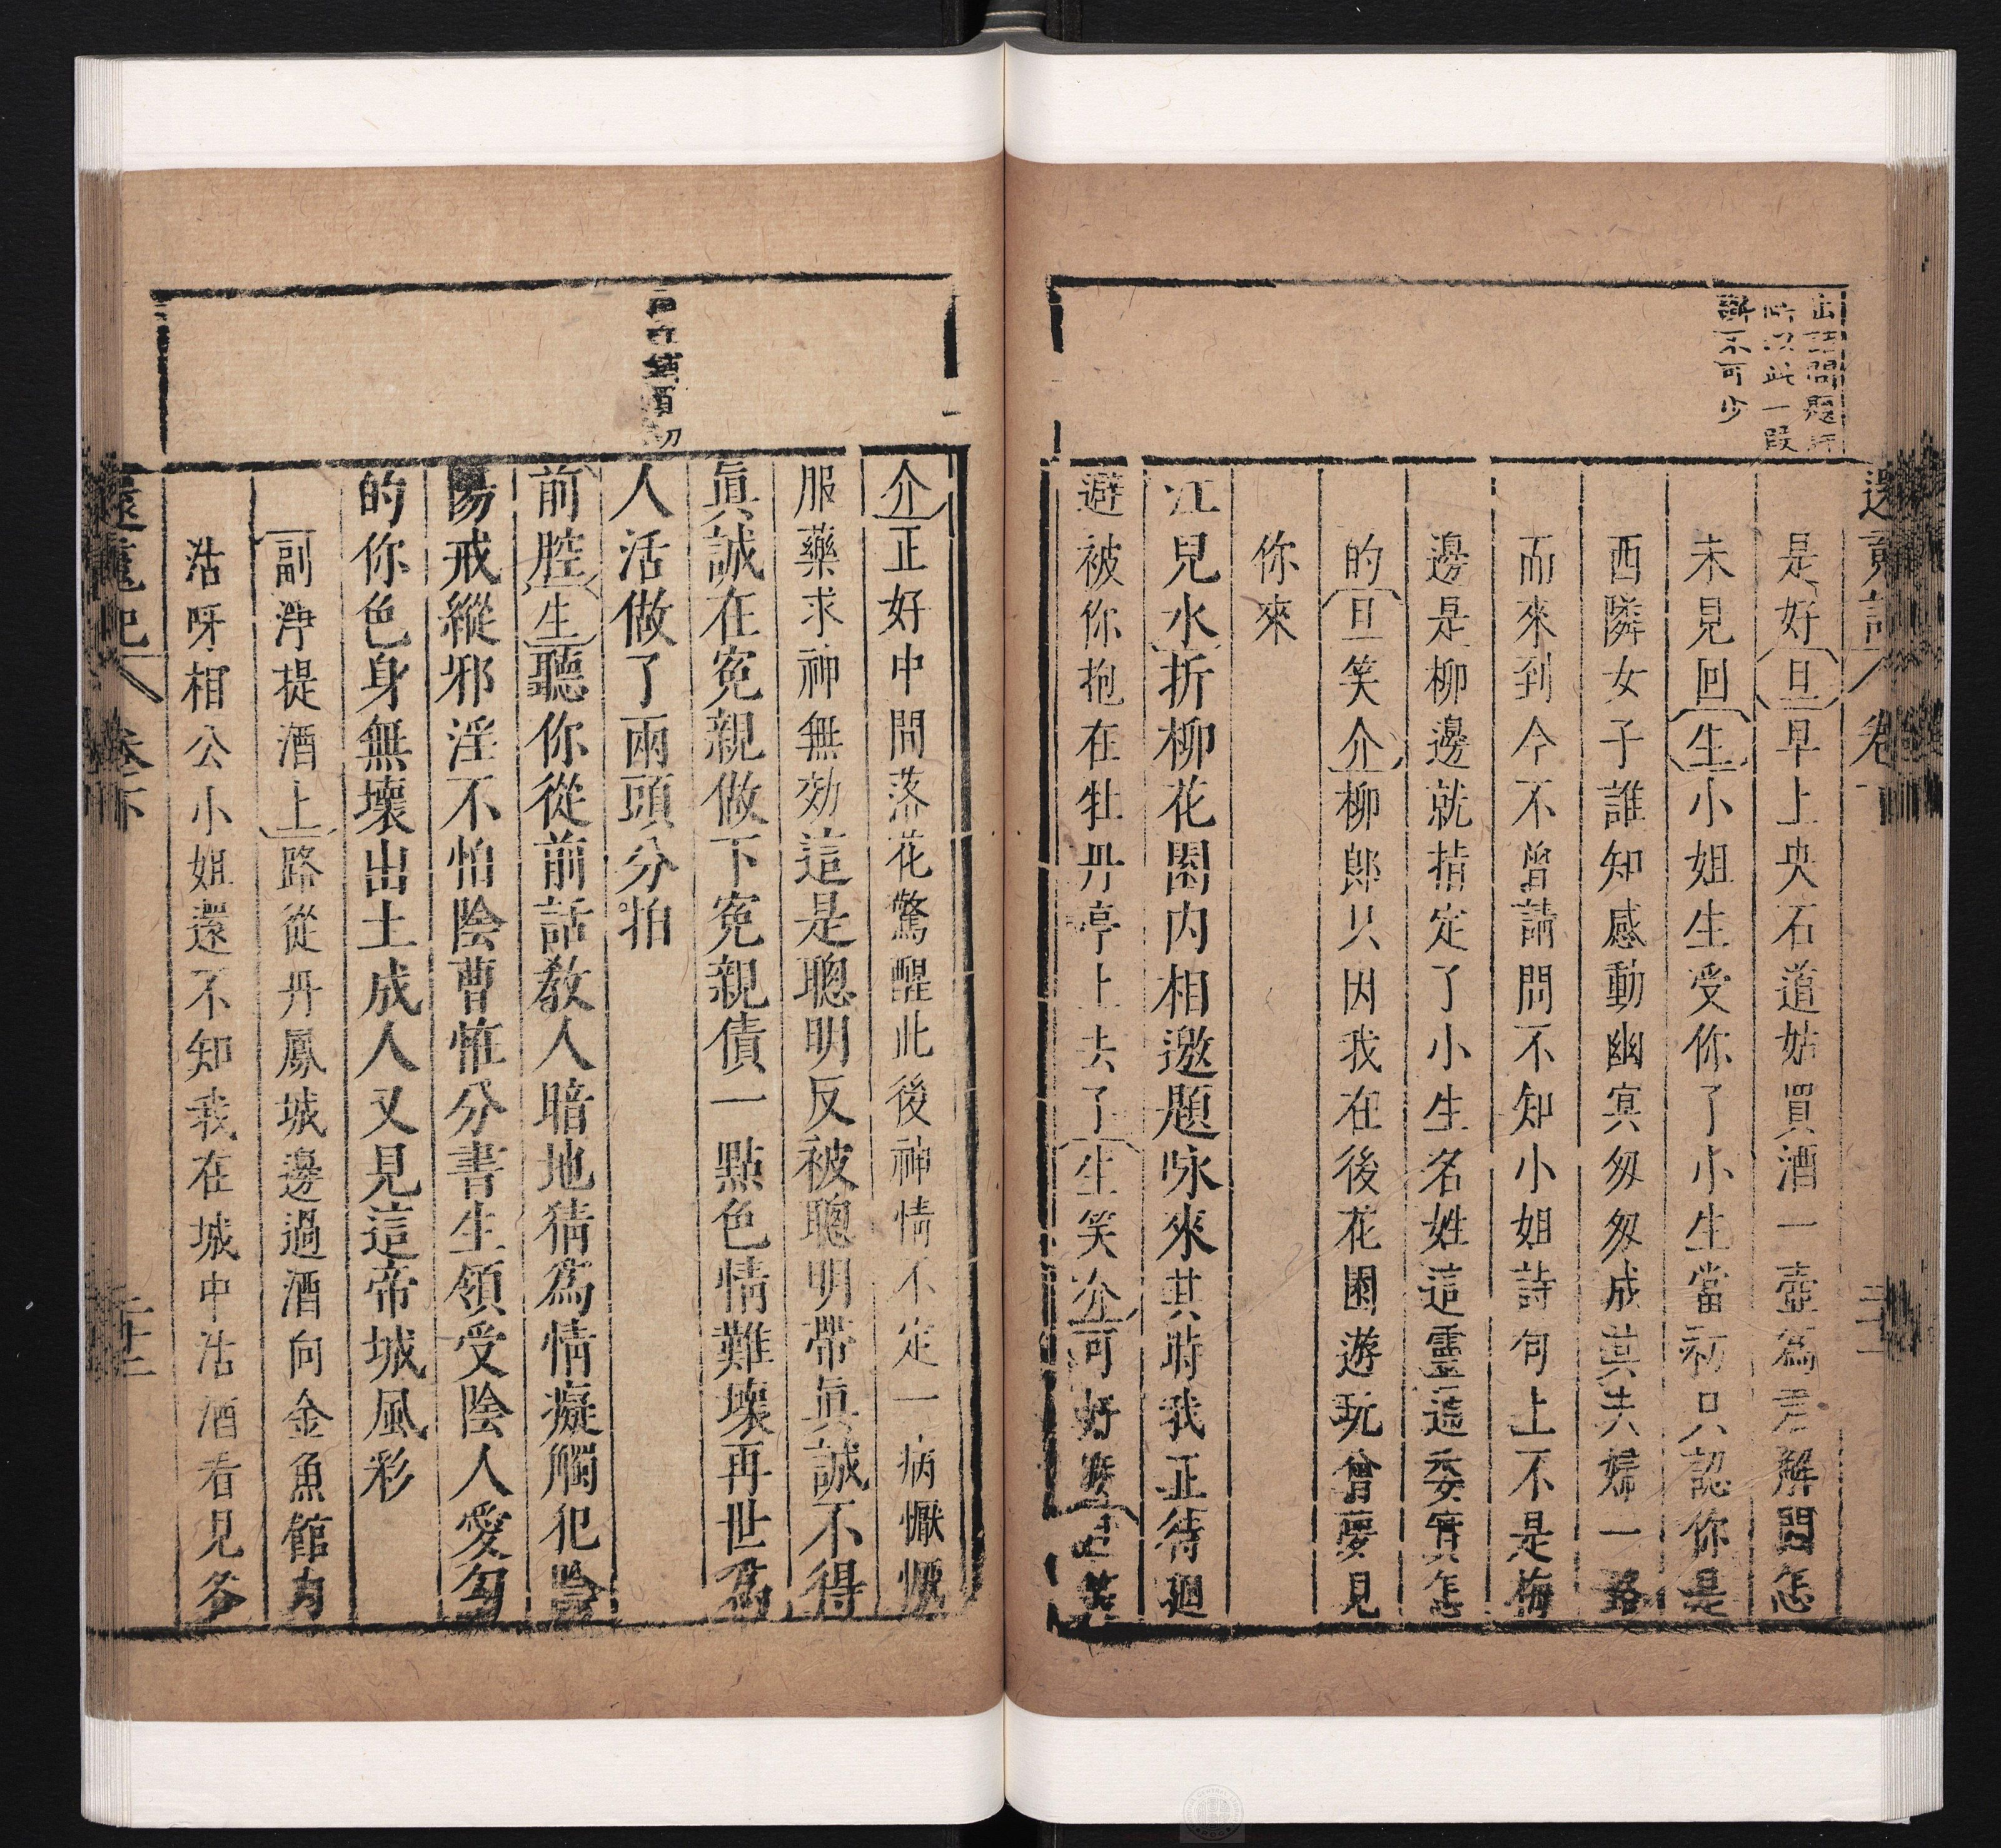 還魂記 卷下
問題
此一段
斷不可少
是好旦早上央石道姑買酒一壺為君解悶怎
未見回生小姐生受你了小生當初只認你是
西隣女子誰知感動幽冥匆匆成其夫婦一路
而來到今不曾請問不知小姐詩句上不是梅
邊是柳邊就指定了小生名姓這靈遥委實怎
的旦笑介柳郎只因我在後花園遊玩曾夢見
你來
江兒水折柳花園内相邀題咏來其時我正待廻
避被你抱在牡丹亭上去了生笑介可好麼旦笑
介正好中間落花驚醒此後神情不定一病懨懨
服藥求神無効這是聰明反被聰明帶眞誠不得
眞誠在寃親做下寃親債一點色情難壞再世為
人活做了兩頭分拍
前腔生聽你從前話教人暗地猜為情癡觸犯陰
陽戒縱邪淫不怕陰曹恠分書生領受陰人愛勾
的你色身無壞出土成人又見這帝城風彩
副淨提酒上路從丹鳳城邊過酒向金魚館內
沽呀相公小姐還不知我在城中沽酒看見多
還魂記 卷下 二十二